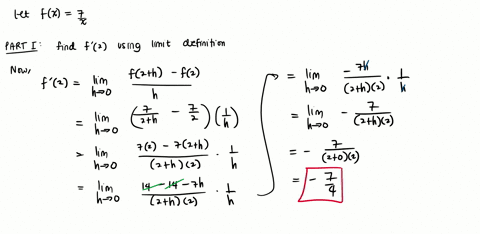 Let f(x) = 7/x
PART I: find f'(2) using limit definition
Now,
f'(2) = lim h→0 (f(2+h) - f(2))/h
= lim h→0 (7/(2+h) - 7/2)(1/h)
= lim h→0 (7(2) - 7(2+h))/((2+h)(2)) · 1/h
= lim h→0 (14 - 14 - 7h)/((2+h)(2)) · 1/h
= lim h→0 (-7h)/((2+h)(2)) · 1/h
= lim h→0 - 7/((2+h)(2))
= - 7/((2+0)(2))
= - 7/4